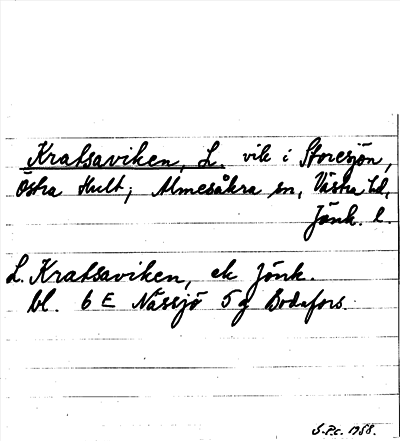 Kratsaviken, L. vik i Storesjön,
Östra Hult; Almesåkra sn, Västra hd,
Jönk. l.
L. Kratsaviken, ek Jönk.
bl. 6 E Nässjö 5 g Bodafors.
S.Pc. 1958.